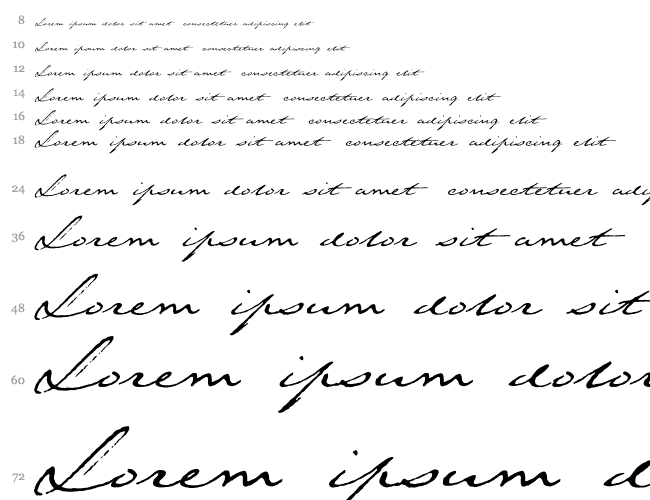 8 Lorem ipsum dolor sit amet consectetuer adipiscing elit
10 Lorem ipsum dolor sit amet consectetuer adipiscing elit
12 Lorem ipsum dolor sit amet consectetuer adipiscing elit
14 Lorem ipsum dolor sit amet consectetuer adipiscing elit
16 Lorem ipsum dolor sit amet consectetuer adipiscing elit
18 Lorem ipsum dolor sit amet consectetuer adipiscing elit
24 Lorem ipsum dolor sit amet consectetuer adip
36 Lorem ipsum dolor sit amet
48 Lorem ipsum dolor sit
60 Lorem ipsum dolor
72 Lorem ipsum d